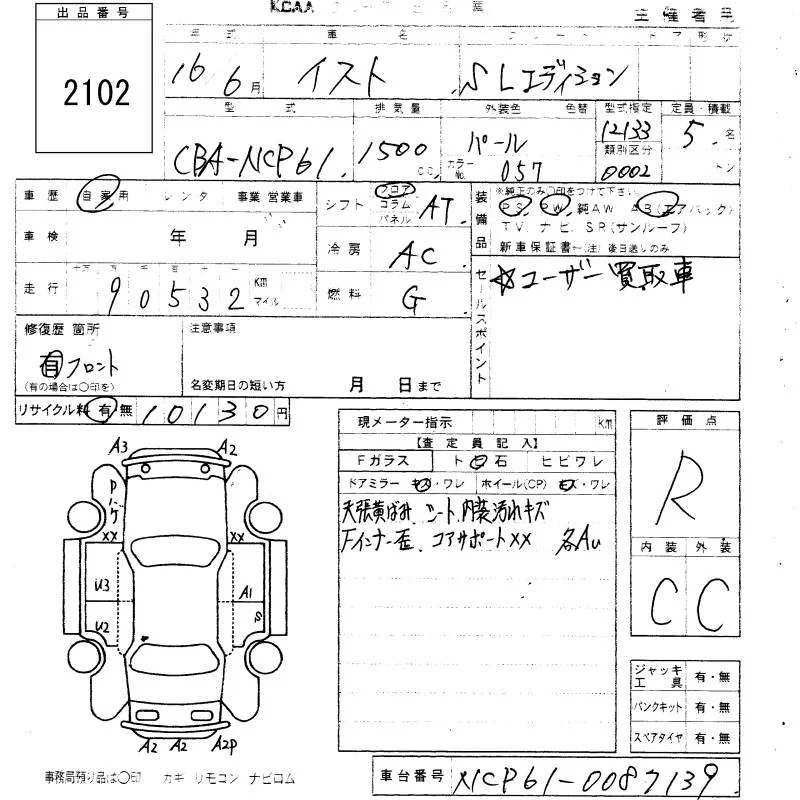 出品番号
2102
KCAA
主催者用
年式 車名 グレード ドア 形状
16 6月 イスト SLエディション
型式 排気量 外装色 色替 型式指定 定員・積載
CBA-NCP61 1500cc パール 12133 5名
カラーNo. 057 類別区分 0002 トン
車歴 自家用 レンタ 事業 営業車
シフト フロア コラム パネル AT
装備品 ※純正のみ○印をつけて下さい。
PS PW 純AW AB(エアバック)
TV ナビ SR(サンルーフ)
新車保証書←(注)後日送しのみ
車検 年 月
冷房 AC
走行 十万 万 千 百 十 一
90532 Km マイル
燃料 G
セールスポイント
☆ユーザー買取車
修復歴 箇所
有 フロント
(有の場合は○印を)
注意事項
名変期日の短い方 月 日まで
リサイクル料 有 無 10130円
現メーター指示 km
【査定員記入】
Fガラス ト石 ヒビワレ
ドアミラー キズ・ワレ ホイール(CP) キズ・ワレ
天張黄ばみ シート、内装汚れキズ
Fインナー歪、コアサポートXX 各AU
評価点
R
内装 外装
C C
A3 A2
XX XX
U3 A1
U2
A2 A2 A2P
ジャッキ工具 有・無
パンクキット 有・無
スペアタイヤ 有・無
事務局預り品は○印 カギ リモコン ナビロム
車台番号 NCP61-0087139